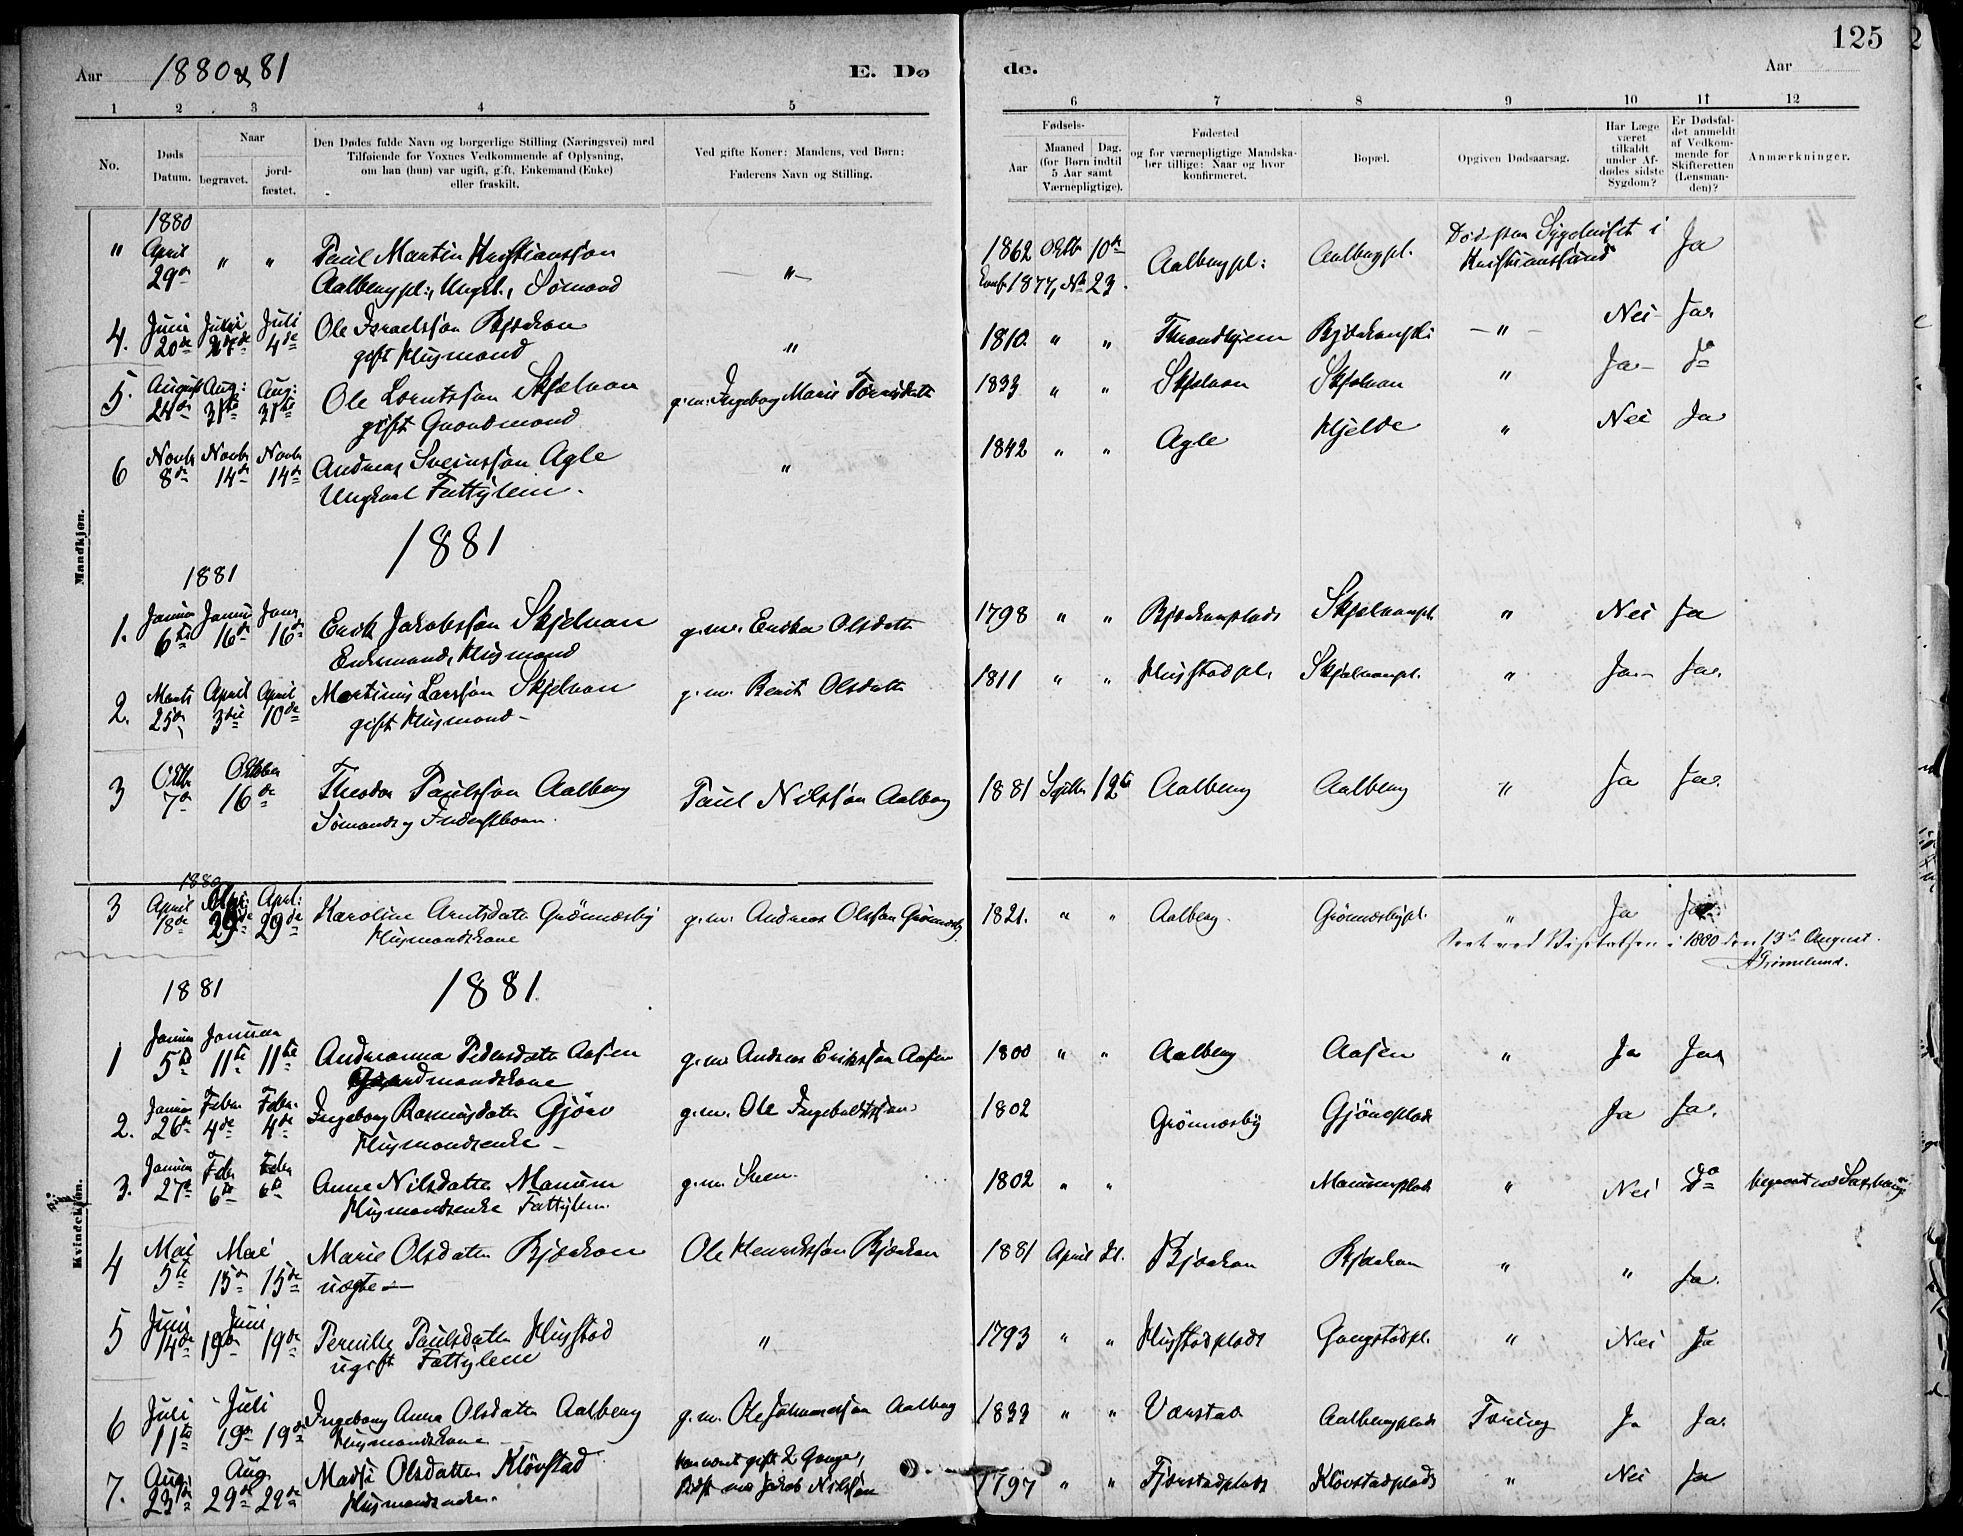 125
Aar 1880 & 81 E. Dø de. Aar
1 2 3 4 5 6 7 8 9 10 11 12
No.
Døds Datum.
Naar
begravet.
jord-
fæstet.
Den Dødes fulde Navn og borgerlige Stilling (Næringsvei) med
Tilføiende for Voxnes Vedkommende af Oplysning,
om han (hun) var ugift, gift, Enkemand (Enke)
eller fraskilt.
Ved gifte Koner: Mandens, ved Børn:
Faderens Navn og Stilling.
Fødsels-
Aar
Maaned Dag.
(for Børn indtil
5 Aar samt
Værnepligtige).
Fødested
og for værnepligtige Mandska-
ber tillige: Naar og hvor
konfirmeret.
Bopæl.
Opgiven Dødsaarsag.
Har Læge
været
tilkaldt
under Af-
dødes sidste
Sygdom?
Er Dødsfal-
det anmeldt
af Vedkom-
mende for
Skifteretten
(Lensman-
den)?
Anmærkninger.
Mandkjøn.
1880
" April 29de " " Paul Martin Kristianssøn " 1862 Oktbr 10de Aalbergpl: Aalbergpl. Død paa Sygehuset i Ja
Aalbergpl., Ungk., Sømand Konf. 1877, No 23. Kristianssund
4. Juni 20de Juni 27de Juli 4de Ole Israelssøn Bjørkan " 1810. " " Throndhjem " Nei Ja
gift Husmand
5. August 24de Aug: 31te Aug: 31te Ole Lorntssøn Skjelvan g.m. Ingeborg Marie 1833 " " Skjelvan Skjelvan " Ja do
gift Gaardmand
6 Novbr 8de Novbr 14de Novbr 14de Andreas Sveinssøn Agle " 1842 " " Agle Hjelde " Nei Ja
Ungkarl Fattiglem.
1881
1881
1. Januar 6te Januar 16de Janr 16de Erik Jakobssøn Skjelvan g.m. Erika Olsdatter 1798 " " Bjørkanplads Skjelvanpl. " Nei Ja
Enkemand, Husmand
2. Marts 25de April 3die April 10de Martinus Larssøn Skjelvan g.m. Berit Olsdatter 1811 " " Husstadpl. Skjelvanpl. " Ja Ja.
gift Husmand
3 Oktbr 7de Oktober 16de Theodor Paulssøn Aalberg Paul Nilssøn Aalberg 1881 Septbr 12te Aalberg Aalberg " Ja Ja.
1880
3 April 18de 29de April: 29de Karoline Arntsdatter Grønnesby g.m. Andreas Olssøn Grønnesby 1821. " " Aalberg. Grønnesbypl. " Ja Ja
Husmandskone
Seet ved Visitatsen i 1880 den 13de August.
AGrimelund.
1881 1881
Kvindekjøn.
1 Januar 5te Januar 11te 11te Andrianna Pedersdatter Aasen g.m. Andreas Erikssøn Aasen 1800 " " Aalberg Aasen " Ja Ja
Gaardmandskone
2. Januar 26de Febr. 4de Febr. 4de Ingeborg Rasmusdatter Gjørv g.m. Ole Ingebaldtssøn 1802 Grønnesby Gjørvplads Ja Ja.
Husmandsenke
3. Januar 27de Febr 6te Febr 6te Anne Nilsdatter Manum g.m. Sven. 1802 " " Manumsplads " Nei do
Husmandsenke Fattiglem.
4 Mai 5te Mai 15de 15de Marie Olsdatter Bjørkan Ole Henrikssøn Bjørkan 1881 April 21. Bjørkan Bjørkan " " Ja.
uægte
5 Juni 14de Juni 19de 19de Pernille Paulsdatter Husstad " 1793 " " Husstadplads Gangstadpl. " Nei Ja
ugift Fattiglem
6 Juli 11te Juli 19de 19de Ingeborg Anna Olsdatter Aalberg g.m. Ole Johannessøn Aalberg 1833 " " Værstad Aalbergplads Tæring Ja Ja
Husmandskone
7. Aug. 23de Aug. 29de 29de Madsi Olsdatter Kløvstad har været gift 2 Gange, 1797 " " Kløvstadplads " Nei Ja
Husmandsenke. sidst med Jakob Nilssøn